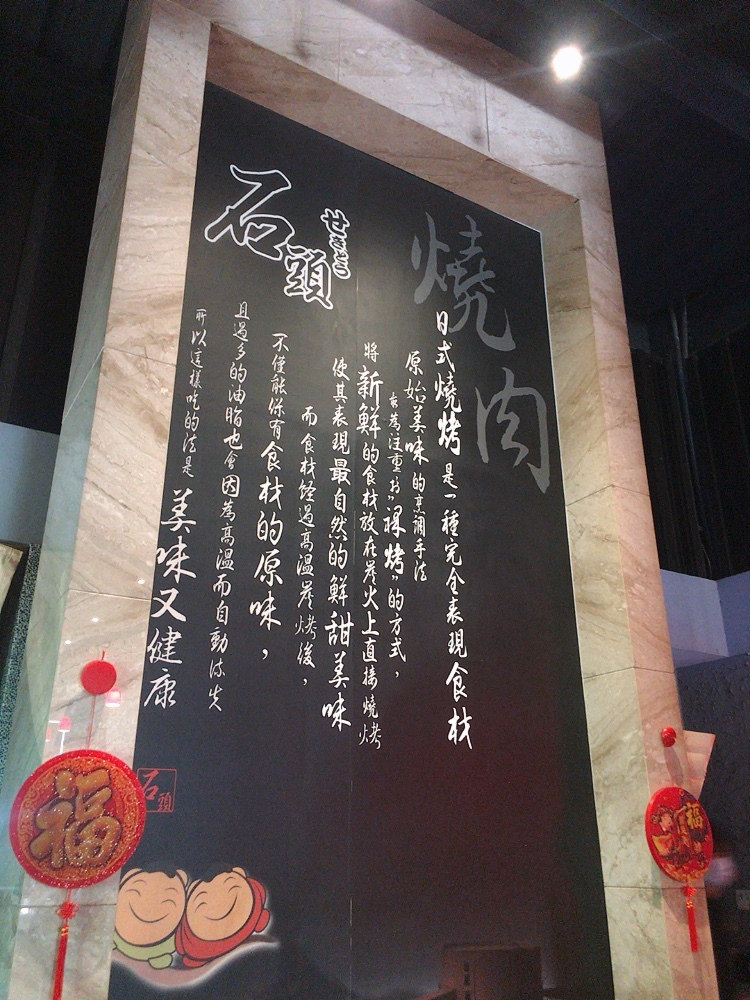 燒肉
日式燒烤是一種完全表現食材
原始美味的烹調手法
"裸烤"的方式，
將新鮮的食材放在炭火上直接燒烤
使其表現最自然的鮮甜美味
而食材經過高溫炭烤後，
不僅能保有食材的原味，
且過多的油脂也會因為高溫而自動流失
所以這樣吃的法是
美味又健康
石頭
石頭
福
福